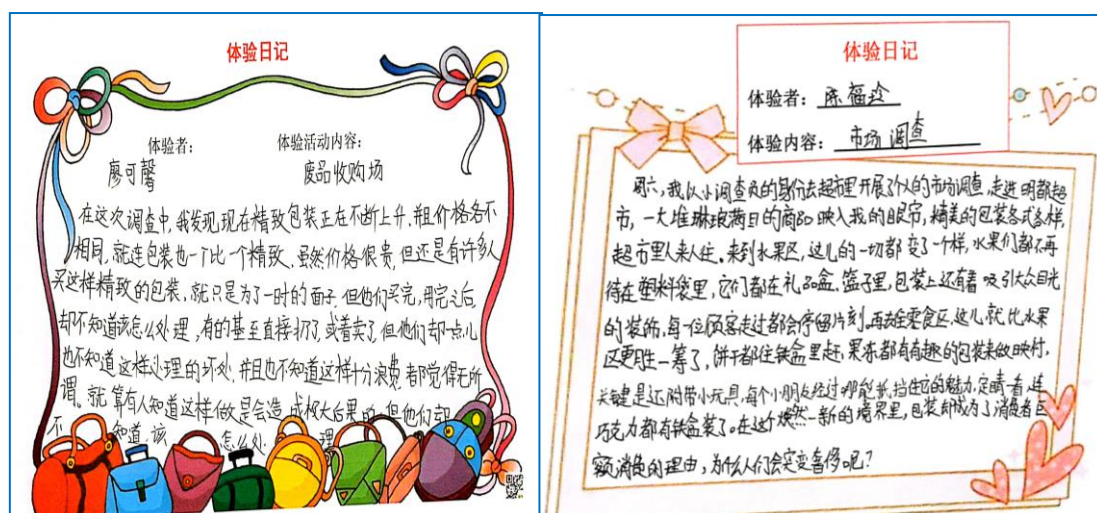 体验日记
体验者：
体验活动内容：
廖可馨
废品收购场
在这次调查中，我发现，现在精致包装正在不断上升，并且价格各不
相同，就连包装也一个比一个精致，虽然价格很贵，但还是有许多人
买这样精致的包装，就只是为了一时的面子，但他们买完，用完之后，
却不知道该怎么处理，有的甚至直接扔了，或者卖了，但他们却一点儿
也不知道这样处理的坏处，并且也不知道这样十分浪费，都觉得无所
谓。就算有人知道这样做是会造成极大后果的，但他们却
不知道，该怎么处理
体验日记
体验者：陈福玲
体验内容：市场调查
周六，我以小调查员的身份去超市里开展了个人的市场调查，走进明都超
市，一大堆琳琅满目的商品映入我的眼帘，精美的包装各式各样，
超市里人来人往。来到水果区，这儿的一切都变了个样，水果们都不再
待在塑料袋里，它们都在礼品盒、篮子里，包装上还有着吸引大众目光
的装饰，每一位顾客走过都会停留片刻。再去零食区，这儿就比水果
区更胜一筹了，饼干都住铁盒里赶，果冻都有有趣的包装来做映衬，
关键是还附带小玩具，每个小朋友经过哪能抵挡住它的魅力，定睛一看，连
巧克力都有铁盒装了。在这个焕然一新的境界里，包装却成为了消费者巨
额消费的理由，为什么人们会突变奢侈呢？